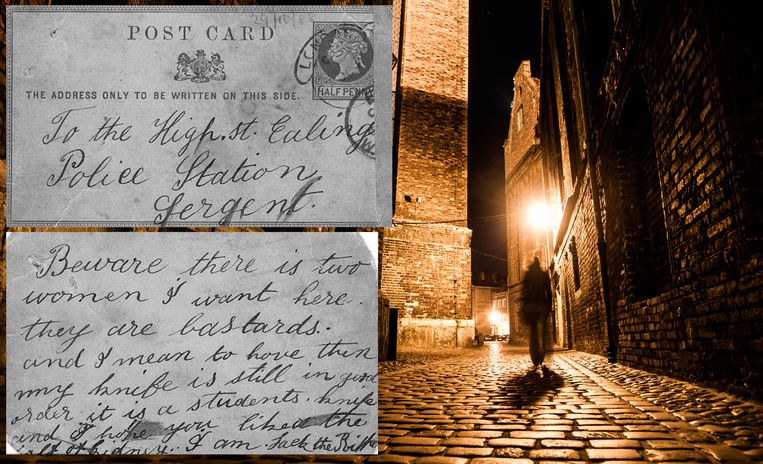 29/10/88
POST CARD
THE ADDRESS ONLY TO BE WRITTEN ON THIS SIDE.
HALF PENNY
To the High.st. Ealing
Police Station
Sergent.
Beware there is two
women I want here.
they are bastards.
and I mean to have them
my knife is still in good
order. it is a students knife
and I hope you liked the
of kidney. I am Jack the Ripper